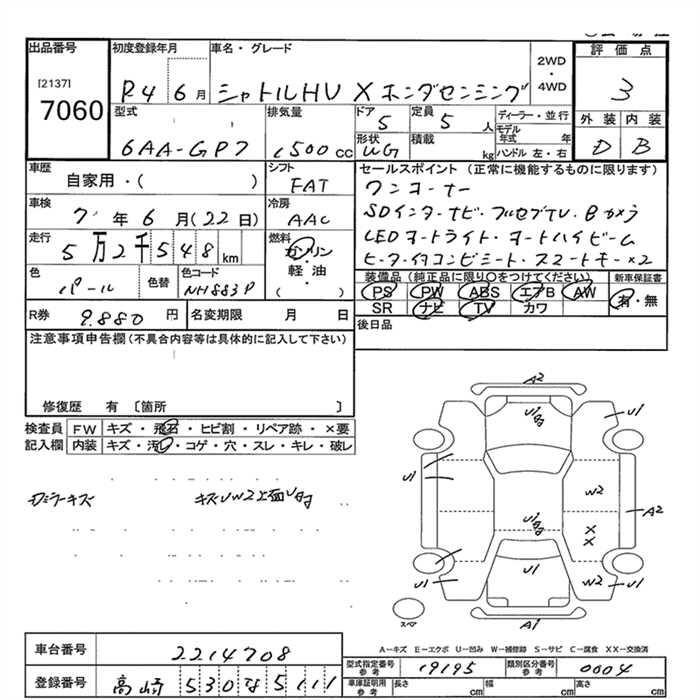 出品番号 初度登録年月 車名・グレード 2WD・4WD 評価点
[2137]
7060
R4 6月 シャトルHV Xホンダセンシング 3
型式 排気量 ドア 定員 ディーラー・並行 外装 内装
6AA-GP7 1500cc 5 5人 モデル年式 年
形状 積載 ハンドル 左・右
WG kg D B
車歴 シフト セールスポイント (正常に機能するものに限ります)
自家用・( ) FAT ワンオーナー
車検 冷房 SDインターナビ・フルセグTV・Bカメラ
7年6月(22日) AAC LEDオートライト・オートハイビーム
走行 燃料
5万2千548km ガソリン・軽・油 ( ) ヒーター付コンビシート・スマートキー×2
色 色替 色コード 装備品(純正品に限り○をつけてください) 新車保証書
パール NH883P PS PW ABS エアB AW 有・無
SR ナビ TV カワ
R券 9.880円 名変期限 月 日 後日品
注意事項申告欄(不具合内容等は具体的に記入して下さい)
修復歴 有 〔箇所 〕
検査員 FW キズ・飛石・ヒビ割・リペア跡・×要
記入欄 内装 キズ・汚レ・コゲ・穴・スレ・キレ・破レ
キズUW2上面U
A2
U1 U1
U1 W2
A2
U1 X
X
U1 U1 W2 U1
スペア A1
A-キズ E-エクボ U-凹み W-補修跡 S-サビ C-腐食 XX-交換済
車台番号 2214708 型式指定番号参考 19195 類別区分番号参考 0004
登録番号 高崎 530 な 5111 車庫証明用参考 長さ cm 幅 cm 高さ cm